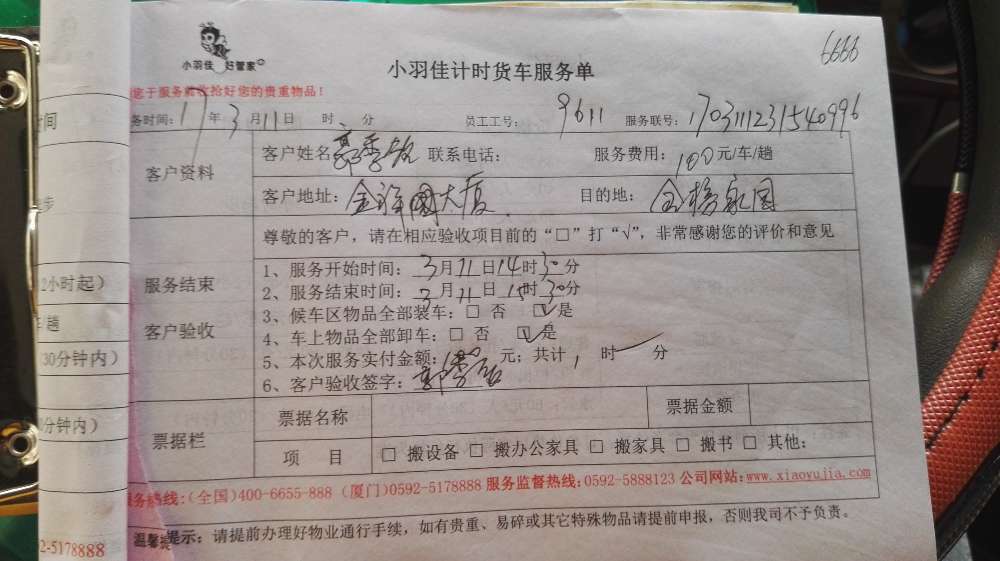 小羽佳 好管家
6666
小羽佳计时货车服务单
您于服务前收拾好您的贵重物品！
务时间：17年3月11日 时 分 员工工号：9611 服务联号：1703111231540996
客户资料
客户姓名 联系电话： 服务费用：100元/车/趟
客户地址：金 国大厦 目的地：金 家园
尊敬的客户，请在相应验收项目前的“□”打“√”，非常感谢您的评价和意见
服务结束
客户验收
1、服务开始时间：3月11日14时30分
2、服务结束时间：3月11日15时30分
3、候车区物品全部装车：□ 否 ☑是
4、车上物品全部卸车：□ 否 ☑是
5、本次服务实付金额： 元；共计1时 分
6、客户验收签字：
票据栏
票据名称 票据金额
项 目 □ 搬设备 □ 搬办公家具 □ 搬家具 □ 搬书 □ 其他：
服务热线：(全国)400-6655-888 (厦门)0592-5178888 服务监督热线：0592-5888123 公司网站：www.xiaoyujia.com
温馨提示：请提前办理好物业通行手续，如有贵重、易碎或其它特殊物品请提前申报，否则我司不予负责。
时间
步
2小时起）
趟
30分钟内）
分钟内）
2-5178888